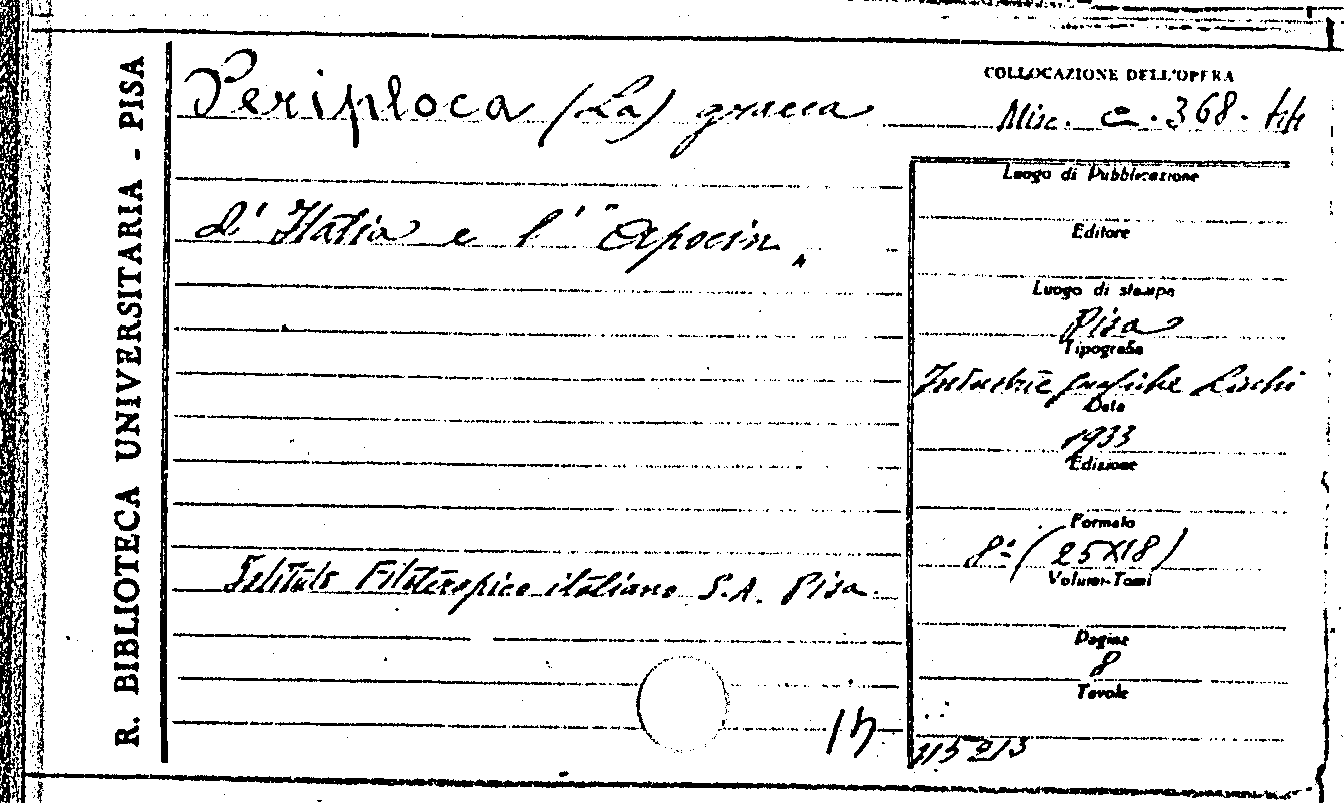 R. BIBLIOTECA UNIVERSITARIA - PISA
Periploca (La) graeca
d'Italia e l' "Apocin„
Istituto Filoterapico italiano S.A. Pisa.
COLLOCAZIONE DELL'OPERA
Misc. 368.
Luogo di Pubblicazione
Editore
Luogo di stampa
Pisa
Tipografia
Industrie grafiche Lischi
Data
1933
Edizione
Formato
8º (25X18)
Volumi-Tomi
Pagine
8
Tavole
115213